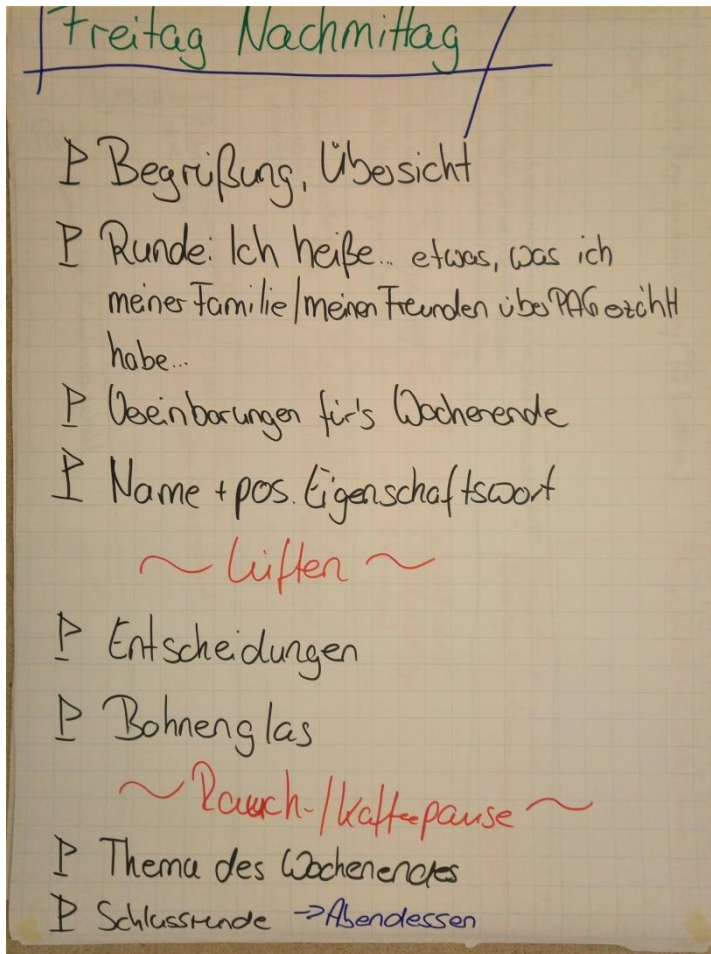 Freitag Nachmittag
Begrüßung, Übersicht
Runde: Ich heiße... etwas, was ich
meiner Familie/meinen Freunden über PAG erzählt
habe...
Vereinbarungen für's Wochenende
Name + pos. Eigenschaftswort
~ Lüften ~
Entscheidungen
Bohnenglas
~ Rauch-/Kaffeepause ~
Thema des Wochenendes
Schlussrunde -> Abendessen